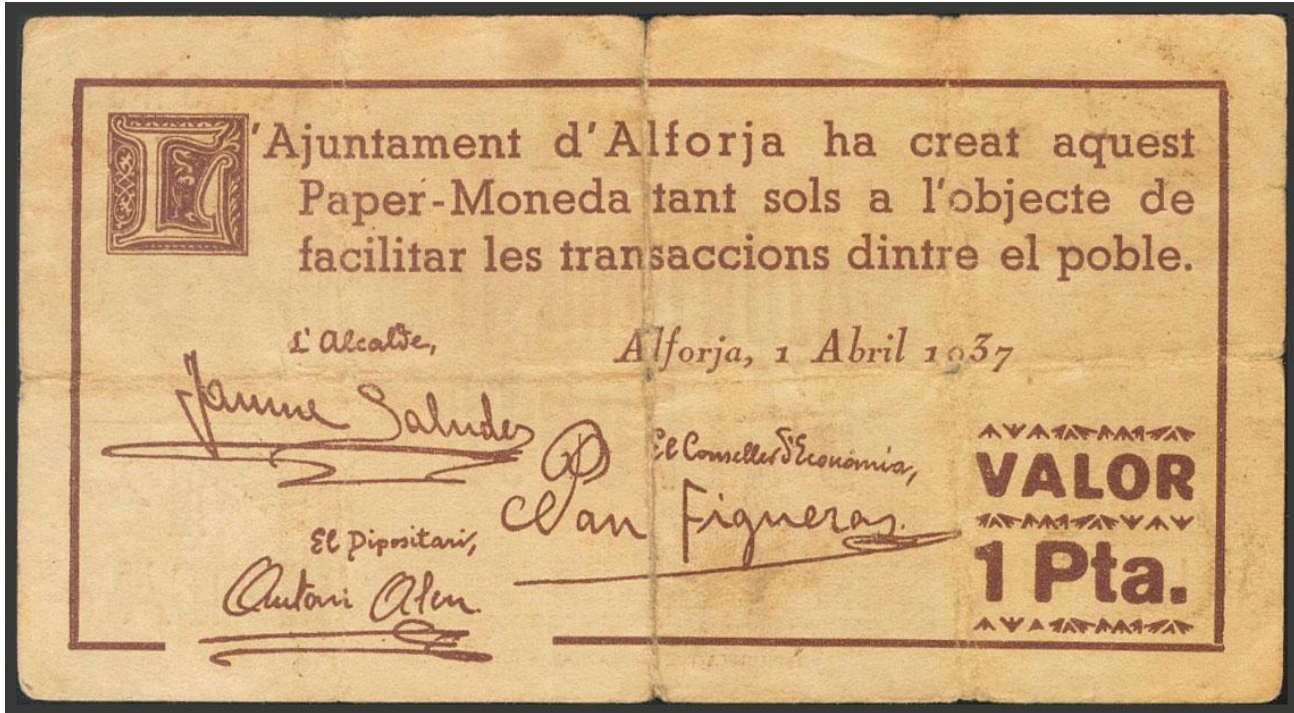 L'Ajuntament d'Alforja ha creat aquest
Paper-Moneda tant sols a l'objecte de
facilitar les transaccions dintre el poble.
L'Alcalde,
Alforja, 1 Abril 1937
Jaume Saludes
El Conseller d'Economia,
Pau Figueras.
VALOR
1 Pta.
El Dipositari,
Antoni